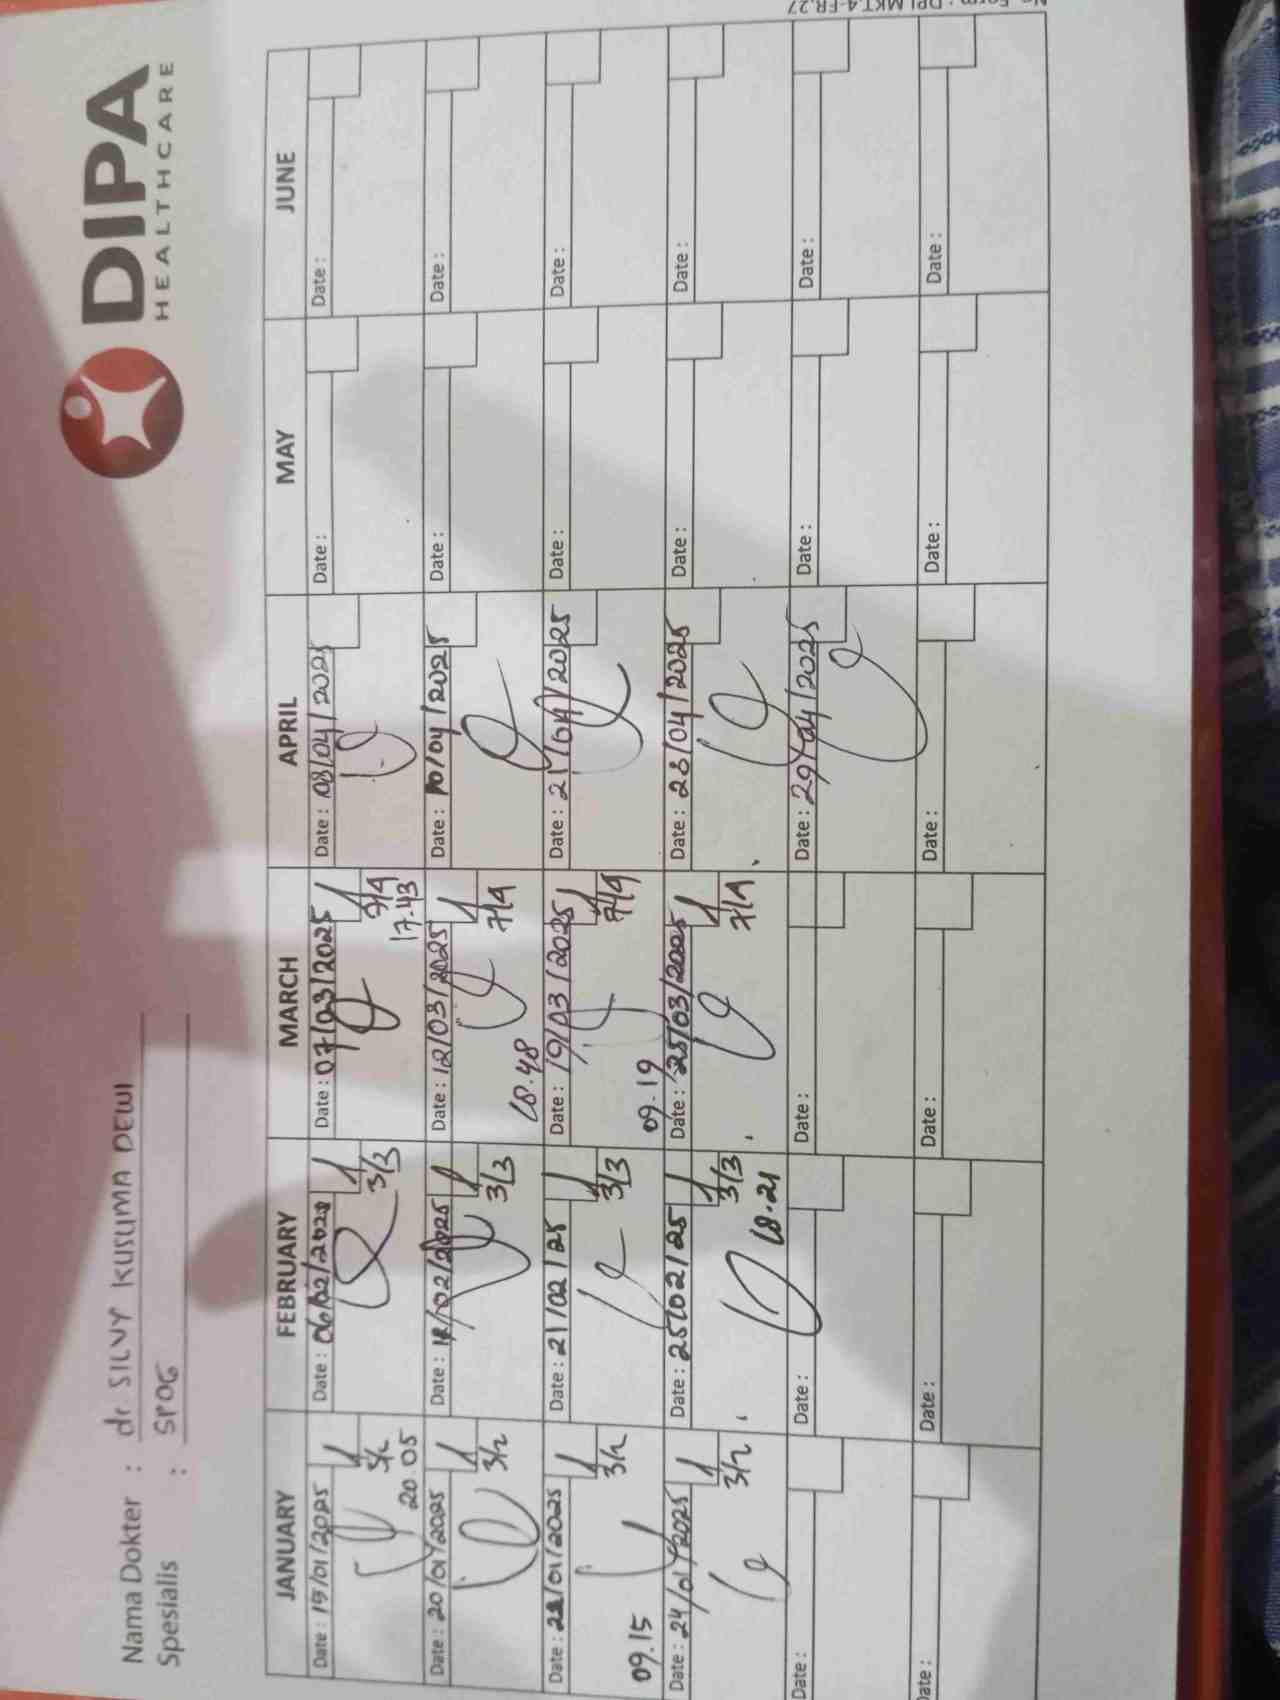 DIPA
HEALTHCARE
Nama Dokter : dr. SILVY KUSUMA DEWI
Spesialis : SPOG
JANUARY FEBRUARY MARCH APRIL MAY JUNE
Date : 15/01/2025 Date : 06/02/2025 Date : 07/03/2025 Date : 08/04/2025 Date : Date :
3/2 3/3 7/4
20.05 17.43
Date : 20/01/2025 Date : 12/02/2025 Date : 12/03/2025 Date : 10/04/2025 Date : Date :
3/2 3/3 7/4
18.48
Date : 22/01/2025 Date : 21/02/25 Date : 19/03/2025 Date : 21/04/2025 Date : Date :
3/2 3/3 7/4
09.15 09.19
Date : 24/01/2025 Date : 25/02/25 Date : 25/03/2025 Date : 23/04/2025 Date : Date :
3/2 3/3 7/4
18.21
Date : Date : Date : Date : 29/04/2025 Date : Date :
Date : Date : Date : Date : Date : Date :
No Form : DPI.MKT.4-FR.27